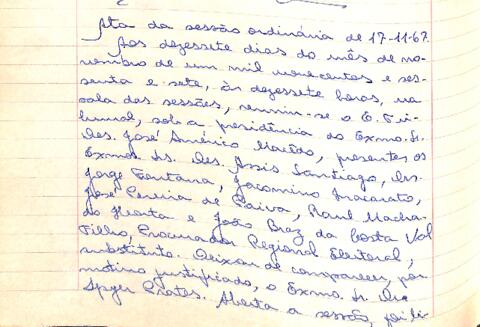 Ata da sessão ordinária de 17-11-67.
Aos dezessete dias do mês de no-
vembro de um mil novecentos e ses-
senta e sete, às dezessete horas, na
sala das sessões, reuniu-se o E. Tri-
bunal, sob a presidência do Exmo. Sr.
Des. José Américo Macêdo, presentes os
Exmos. Srs. Des. Assis Santiago, Drs.
Jorge Fontana, Jacomino Inacarato,
José Pereira de Paiva, Raul Macha-
do Horta e João Braz da Costa Val
Filho, Procurador Regional Eleitoral,
substituto. Deixou de comparecer, por
motivo justificado, o Exmo. Sr. Dr.
Prates. Aberta a sessão, foi li